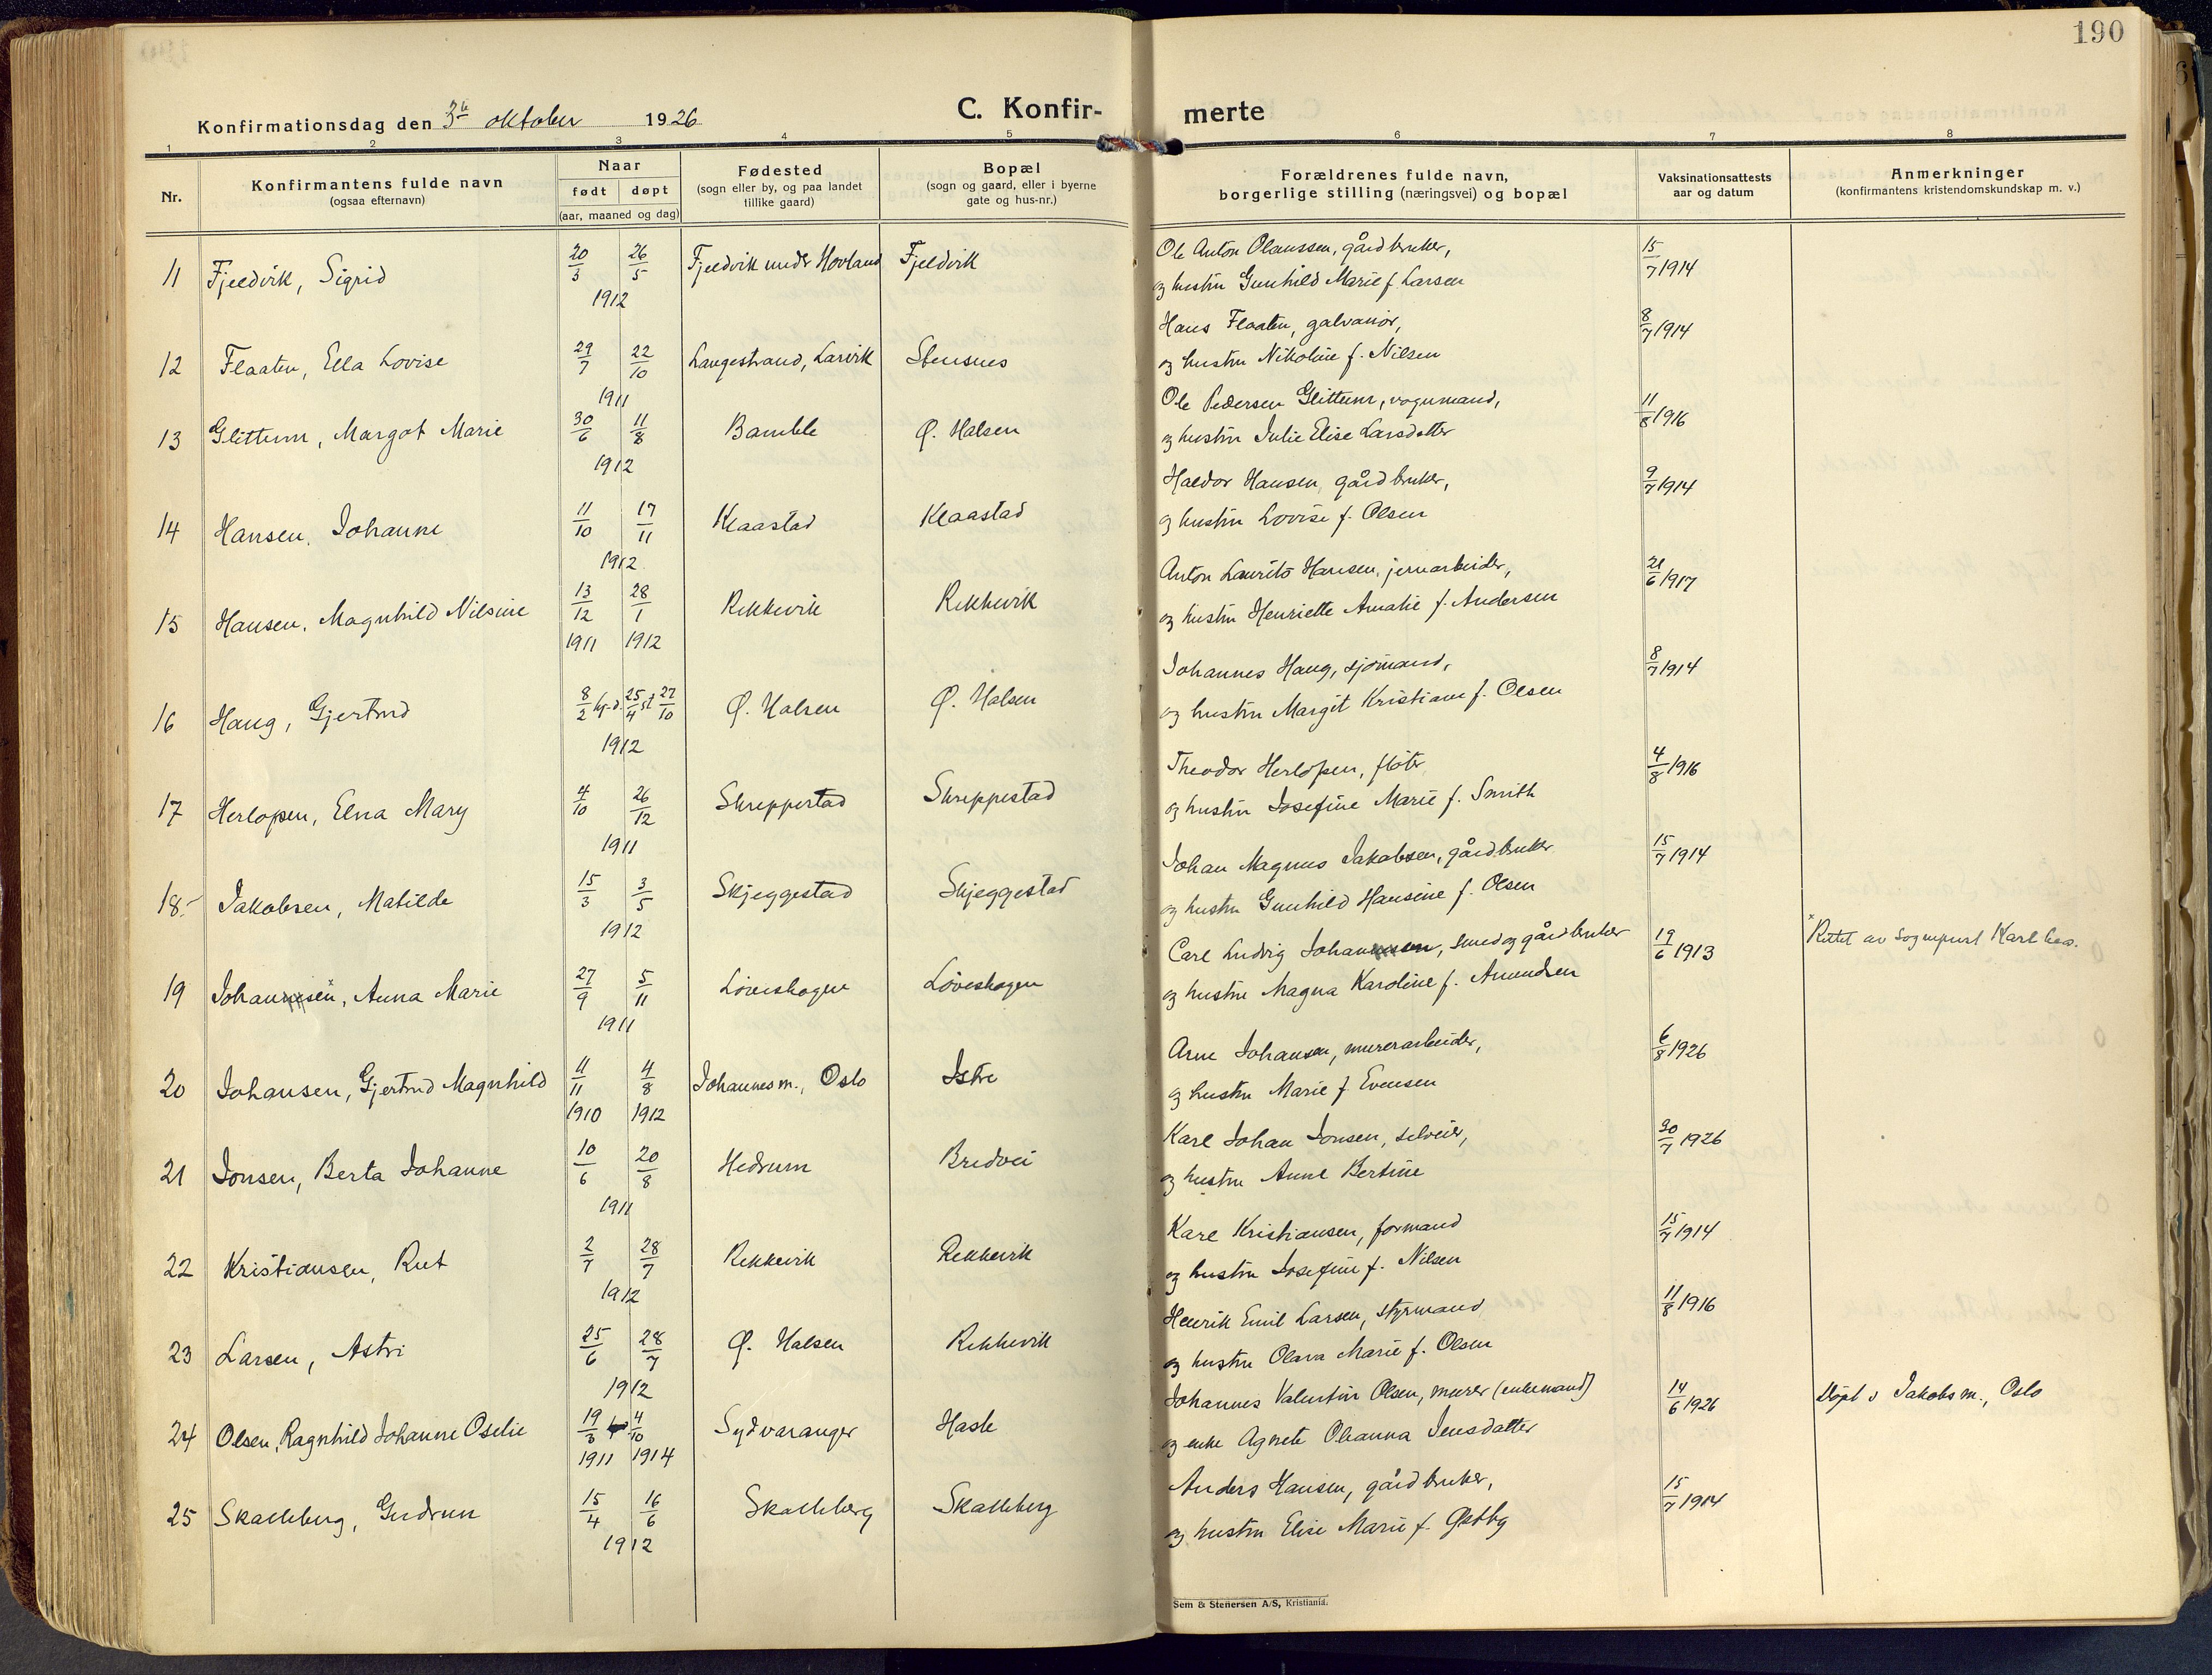 190
Konfirmationsdag den 3die oktober 1926
C. Konfir- merte
1 2 3 4 5 6 7 8
Nr.
Konfirmantens fulde navn
(ogsaa efternavn)
Naar
født døpt
(aar, maaned og dag)
Fødested
(sogn eller by, og paa landet
tillike gaard)
Bopæl
(sogn og gaard, eller i byerne
gate og hus-nr.)
Forældrenes fulde navn,
borgerlige stilling (næringsvei) og bopæl
Vaksinationsattests
aar og datum
Anmerkninger
(konfirmantens kristendomskundskap m. v.)
11 Fjeldvik, Sigrid 20/3 26/5 1912 Fjeldvik under Hovland Fjeldvik
Ole Anton Olaussen, gårdbruker, 15/7 1914
og hustru Gunhild Marie f. Larsen
12 Flaaten, Ella Lovise 29/7 22/10 1911 Langestrand, Larvik Stensnes
Hans Flaaten, galvanior, 8/7 1914
og hustru Nikoline f. Nilsen
13 Glittum, Margot Marie 30/6 11/8 1912 Bamble Ø. Halsen
Ole Pedersen Glittum, vognmand, 11/8 1916
og hustru Julie Elise Larsdatter
14 Hansen, Johanne 11/10 17/11 1912 Klaastad Klaastad
Haldor Hansen, gårdbruker, 9/7 1914
og hustru Lovise f. Olsen
15 Hansen, Magnhild Nilsine 13/12 1911 28/1 1912 Rekkevik Rekkevik
Anton Laurits Hansen, jernarbeider, 21/6 1917
og hustru Henriette Amalie f. Andersen
16 Haug, Gjertrud 8/2 hj-d. 25/4 st 27/10 1912 Ø. Halsen Ø. Halsen
Johannes Haug, sjømand, 8/7 1914
og hustru Margit Kristiane f. Olsen
17 Herlopsen, Elna Mary 4/10 26/12 1911 Skreppestad Skreppestad
Theodor Herlopsen, fløter 4/8 1916
og hustru Josefine Marie f. Smith
18. Jakobsen, Matilde 15/3 3/5 1912 Skjeggestad Skjeggestad
Johan Magnus Jakobsen, gårdbruker 15/7 1914
og hustru Gunhild Hansine f. Olsen
19 Johannesen, Anna Marie 27/9 5/11 1911 Løveskogen Løveskogen
Carl Ludvig Johannessen, smed og gårdbruker 19/6 1913 × Rettet av sogneprest Karl
og hustru Magna Karoline f. Amundsen
20 Johansen, Gjertrud Magnhild 11/11 1910 4/8 1912 Johannes m., Oslo Istre
Arne Johansen, murerarbeider, 6/8 1926
og hustru Marie f. Evensen
21 Jonsen, Berta Johanne 10/6 20/8 1911 Hedrum Bredvei
Karl Johan Jonsen, selveier, 30/7 1926
og hustru Anne Bertine
22 Kristiansen, Rut 2/7 28/7 1912 Rekkevik Rekkevik
Karl Kristiansen, formand 15/7 1914
og hustru Josefine f. Nilsen
23 Larsen, Astri 25/6 28/7 1912 Ø. Halsen Rekkevik
Henrik Emil Larsen, styrmand 11/8 1916
og hustru Olava Marie f. Olsen
24 Olsen, Ragnhild Johanne Oselie 19/3 1911 4/10 1914 Sydvaranger Hasle
Johannes Valentin Olsen, murer (enkemand) 14/6 1926 Døpt i Jakobs m., Oslo
og enke Agnete Oleanna Jensdatter
25 Skalleberg, Gudrun 15/4 16/6 1912 Skalleberg Skalleberg
Anders Hansen, gårdbruker, 15/7 1914
og hustru Elise Marie f. Østby
Sem & Stenersen A/S, Kristiania.